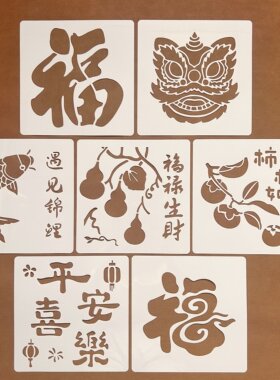 福
遇见锦鲤
福禄生財
柿
如
平安
喜樂
福